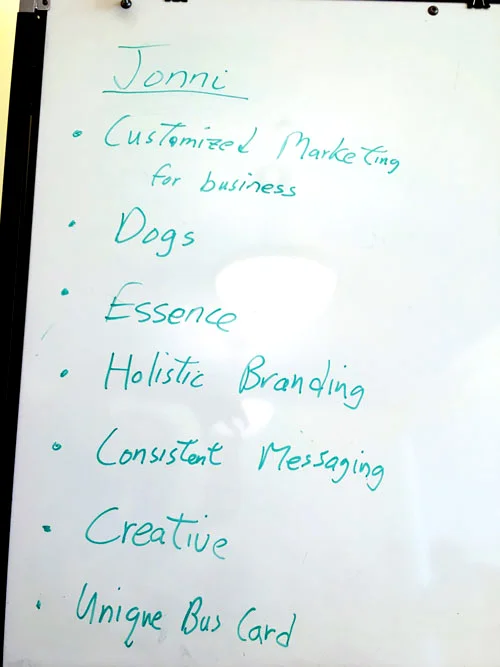 Jonni
• Customized Marketing
for business
• Dogs
• Essence
• Holistic Branding
• Consistent Messaging
• Creative
• Unique Bus Card